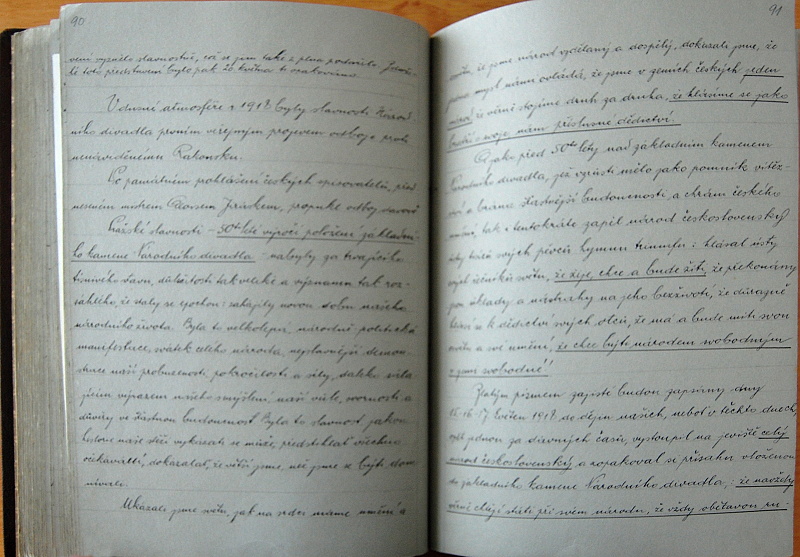 90
vení vyznělo slavnostně, což se jim také z plna podařilo.
té toto představení bylo pak 20. května t. opakováno.
V dusné atmosféře r. 1918 byly slavnosti Národ
ního divadla prvním veřejným projevem odboje proti
nenáviděnému Rakousku.
Po památném prohlášení českých spisovatelů, před
neseném mistrem Aloisem Jiráskem, propukl odboj
Pražské slavnosti – 50ti leté výročí položení základní-
ho kamene Národního divadla: nabyly za trvajícího
tísnivého stavu, důležitosti tak veliké a významu tak roz-
sáhlého, že staly se epochou: zahájily novou dobu našeho
národního života. Byla to velkolepá, národně politická
manifestace, svátek celého národa, nejslavnější demon-
strace naší probuzenosti, pokročilosti a síly, daleko
jejím výrazem našeho smýšlení, naší vůle, svornosti a
důvěry ve šťastnou budoucnost. Byla to slavnost, jakou
historie naše stěží vykázati se může, předstihlať všechna
očekávání, dokázalať, že větší jsme, než jsme se býti dom
nívali.
Ukázali jsme světu, jak na srdci máme umění a
91
světu, že jsme národ vzdělaný a dospělý, dokázali jsme, že
mysl námi ovládá, že jsme v zemích českých jeden
národ, že věrně stojíme druh za druha, že hlásíme se jako
bratří o svoje nám příslušné dědictví.
A jako před 50ti léty nad základním kamenem
Národního divadla, jež vyrůsti mělo jako pomník vítěz-
ství a brána šťastnější budoucnosti, a chrám českého
umění, tak i tentokráte zapěl národ československý
ústy svých pěvců hymnu triumfu i hlásal ústy
svých řečníků světu, že žije, chce a bude žíti, že překonány
jsou úklady a nástrahy na jeho bezživotí, že důrazně
hlásí se k dědictví svých otců, že má a bude míti svou
a své umění, že chce býti národem svobodným
v zemi svobodné!
Zlatým písmem zajisté budou zapsány dny
15. 16. 17. květen 1918 do dějin našich, neboť v těchto dnech,
jednou za dávných časů, vystoupil na jeviště celý
národ československý a zopakoval si přísahu vloženou
do základního kamene Národního divadla,: že navždy
věrně chtějí státi při svém národu, že vždy obětavou ru-